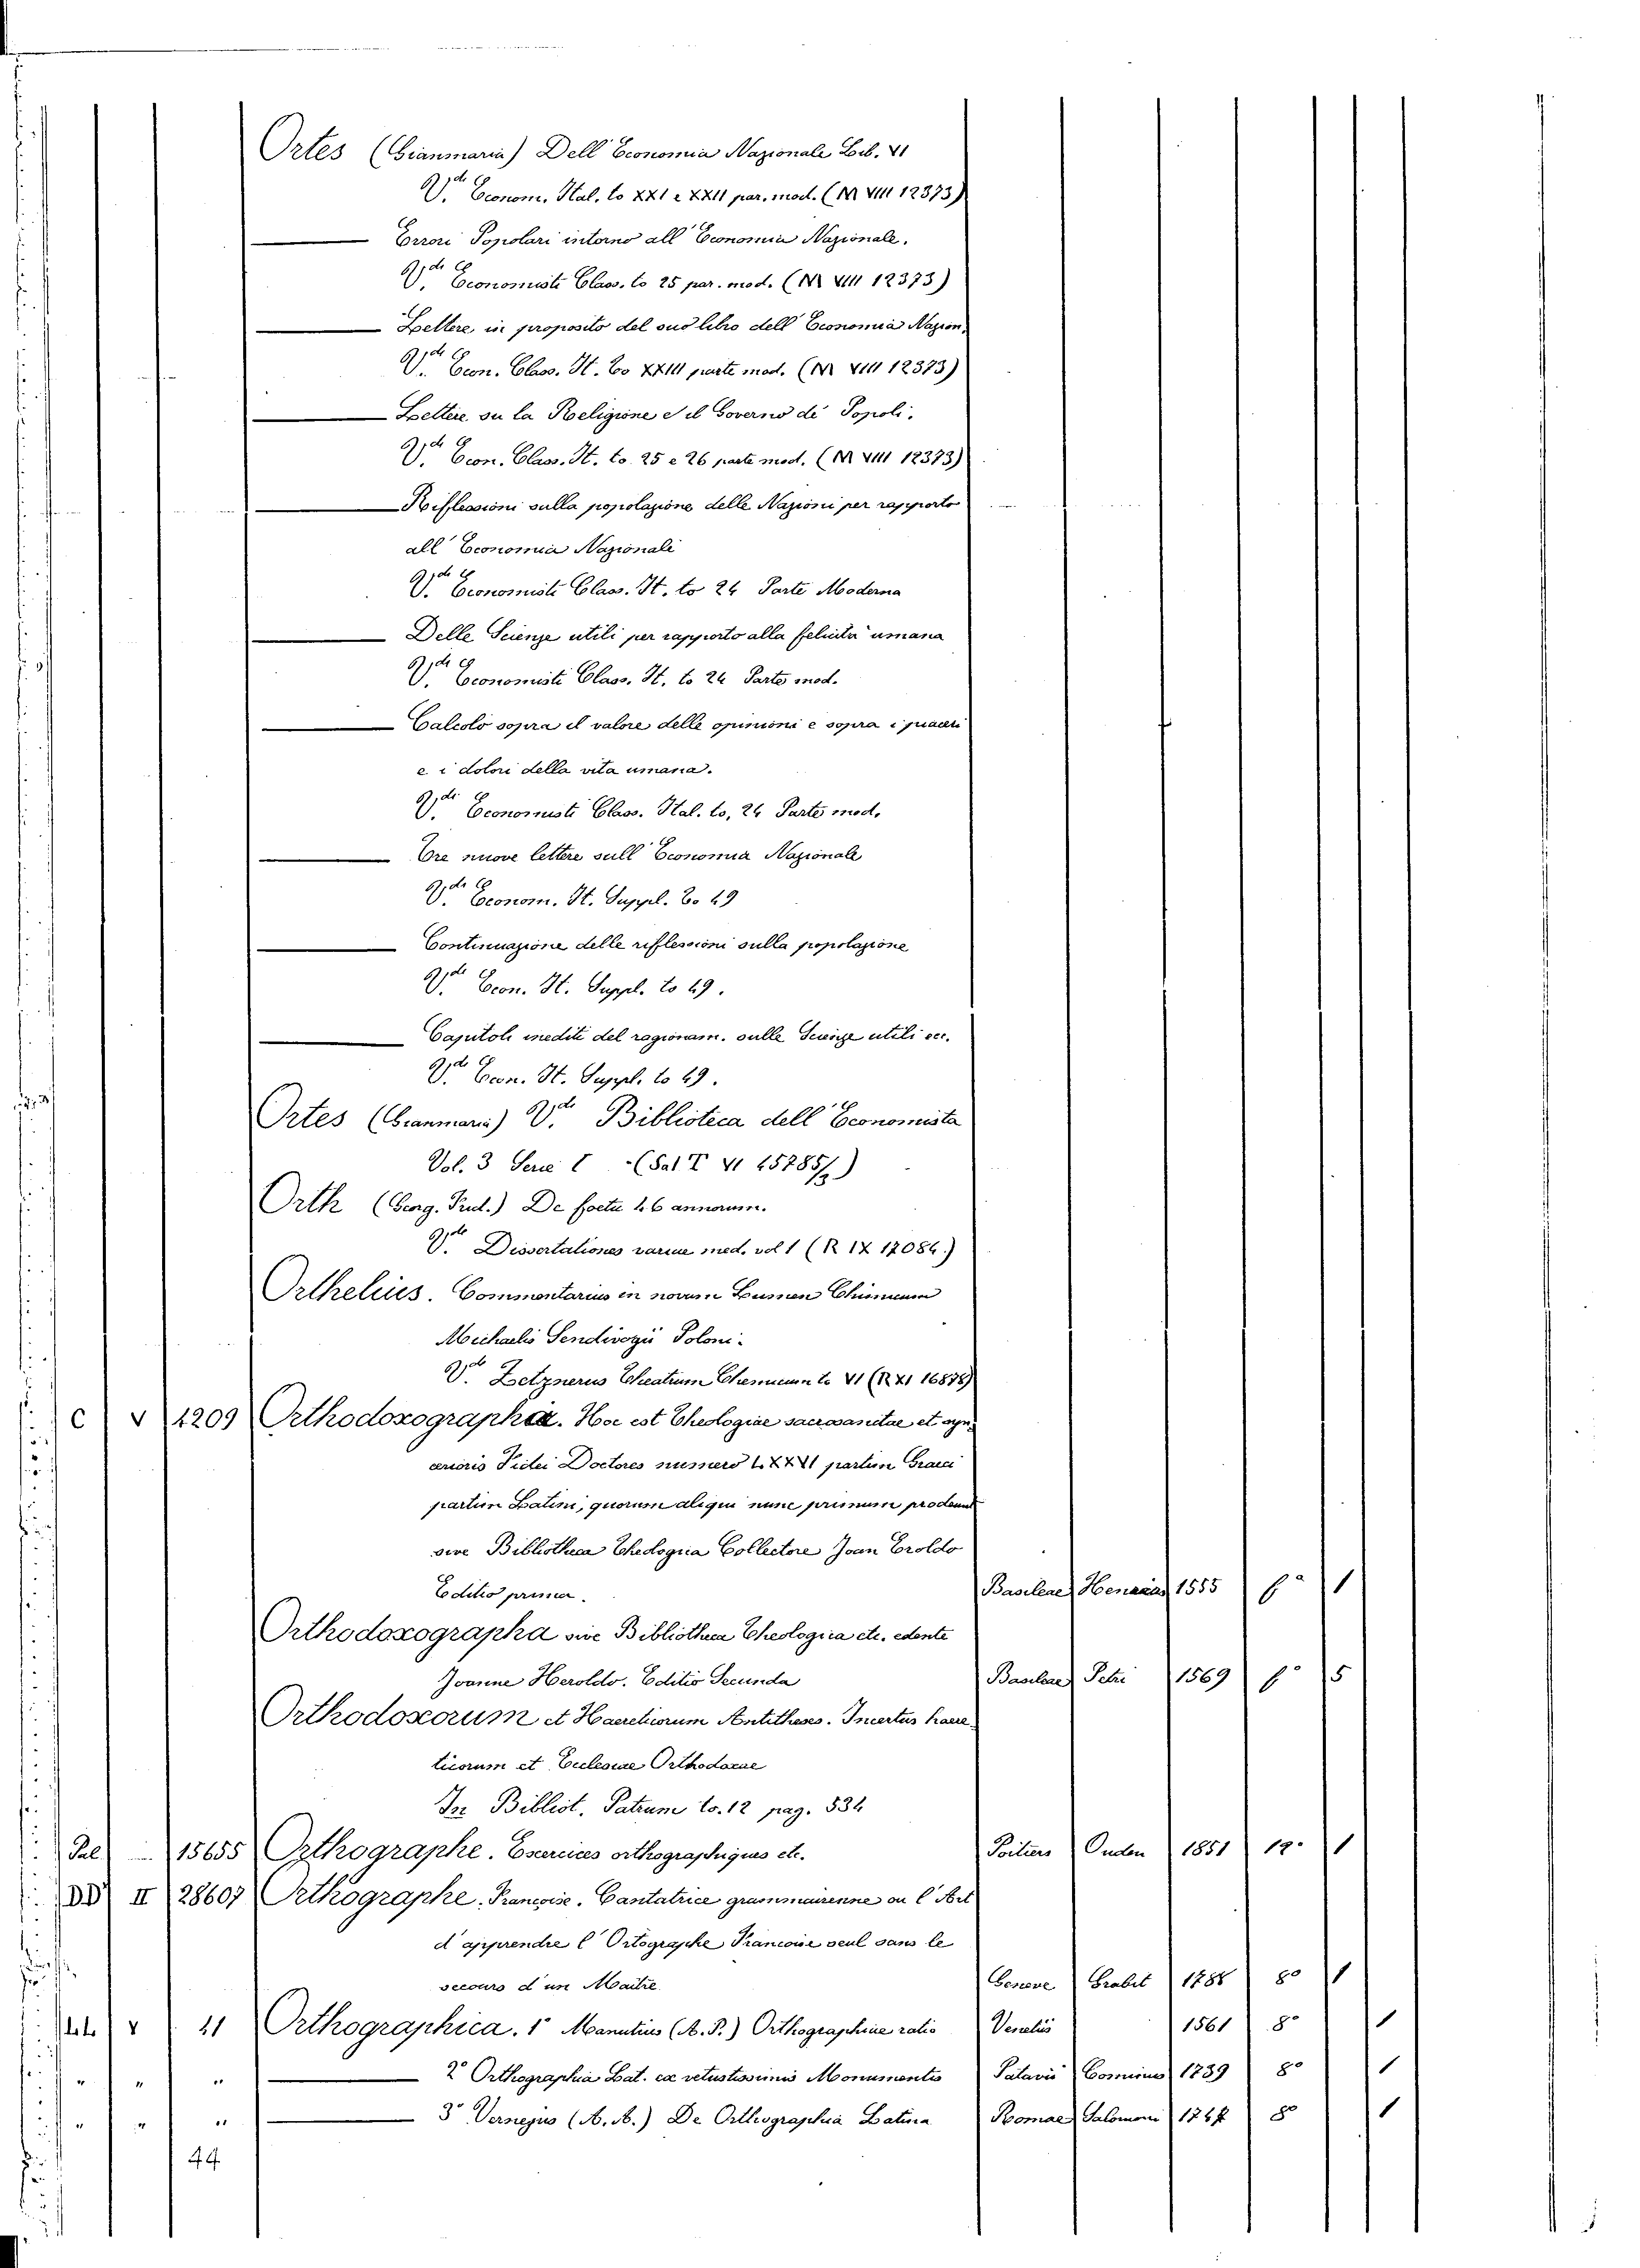 Ortes (Gianmaria) Dell' Economia Nazionale Lib. VI
V.de Econom. Ital. to XXI e XXII par. mod. (M VIII 12373)
Errori Popolari intorno all' Economia Nazionale.
V.de Economisti Class. to 25 par. mod. (M VIII 12373)
Lettere in proposito del suo libro dell' Economia Nazion.
V.de Econ. Class. It. to XXIII parte mod. (M VIII 12373)
Lettere su la Religione e il Governo di Popoli.
V.de Econ. Class. It. to 25 e 26 parte mod. (M VIII 12373)
Riflessioni sulla popolazione delle Nazioni per rapporto
all' Economia Nazionale
V.de Economisti Class. It. to 24 Parte Moderna
Delle Scienze utili per rapporto alla felicità umana
V.de Economisti Class. It. to 24 Parte mod.
Calcolo sopra il valore delle opinioni e sopra i piaceri
e i dolori della vita umana.
V.de Economisti Class. Ital. to. 24 Parte mod.
Tre nuove lettere sull' Economia Nazionale
V.de Econom. It. Suppl. To 49
Continuazione delle riflessioni sulla popolazione
V.de Econ. It. Suppl. to 49.
Capitoli inediti del ragionam. sulle Scienze utili ec.
V.de Econ. It. Suppl. to 49.
Ortes (Gianmaria) V.de Biblioteca dell' Economista
Vol. 3 Serie I - (Sal T VI 45785/3)
Orth (Georg. Frid.) De foetu 46 annorum.
V.de Dissertationes variae med. vol 1 (R IX 17084.)
Orthelius. Commentarius in novum Lumen Chimicum
Michaelis Sendivogii Poloni.
V.de Zetznerus Theatrum Chemicum to VI (R XI 16878)
C V 4209 Orthodoxographia. Hoc est Theologiae sacrosanctae et syn
cerioris Fidei Doctores numero LXXVI partim Graeci
partim Latini, quorum aliqui nunc primum prodeunt
sive Bibliotheca Theologica Collectore Joan Eroldo
Editio prima. Basileae 1555 f° 1
Orthodoxographa sive Bibliotheca Theologica etc. edente
Joanne Heroldo. Editio Secunda Basileae Petri 1569 f° 5
Orthodoxorum et Haereticorum Antitheses. Incertus haere
ticorum et Ecclesiae Orthodoxae
In Bibliot. Patrum to. 12 pag. 534
Pal 15655 Orthographe. Exercices orthographiques etc. Poitiers Oudin 1851 12° 1
DD II 28607 Orthographe. Françoise. Cantatrice grammairienne ou l'Art
d'apprendre l'Ortographe Francoise seul sans le
secours d'un Maitre. Geneve Grabit 1788 8° 1
V 41 Orthographica. 1° Manutius (A. P.) Orthographiae ratio Venetiis 1561 8° 1
" " " 2° Orthographia Lat. ex vetustissimis Monumentis Patavii Cominus 1739 8° 1
" " " 3° Vernejus (A. A.) De Orthographia Latina Romae Salomoni 8° 1
44